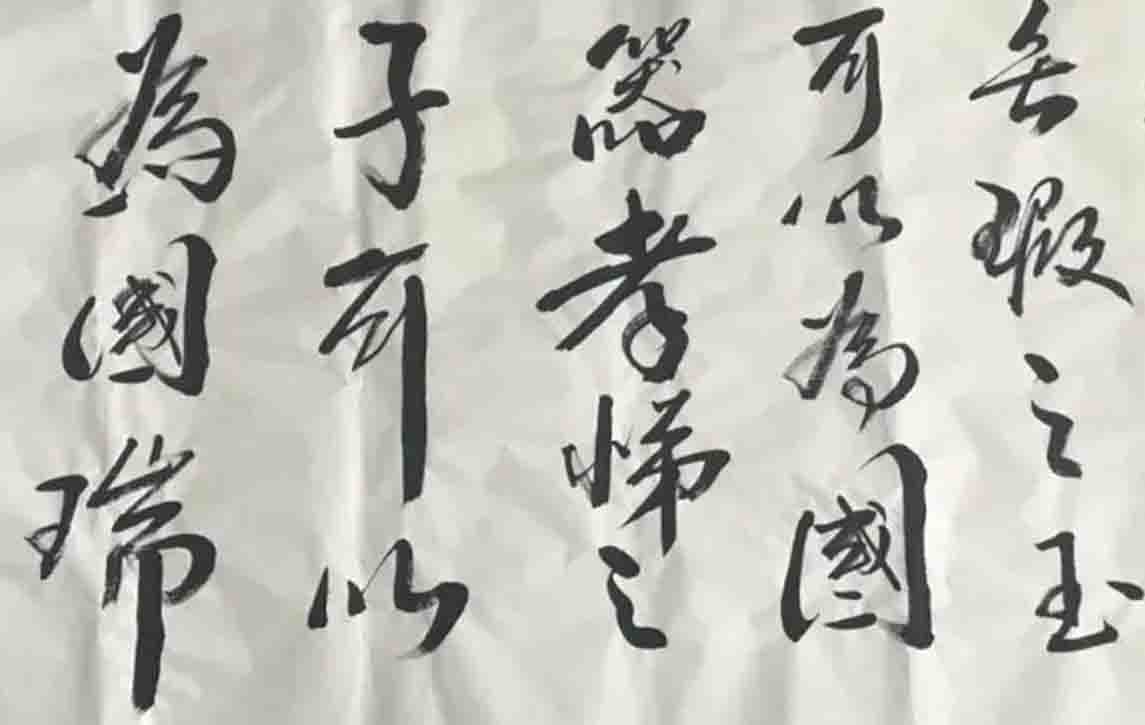 无瑕之玉
可以为國
器孝悌之
子可以
為國瑞